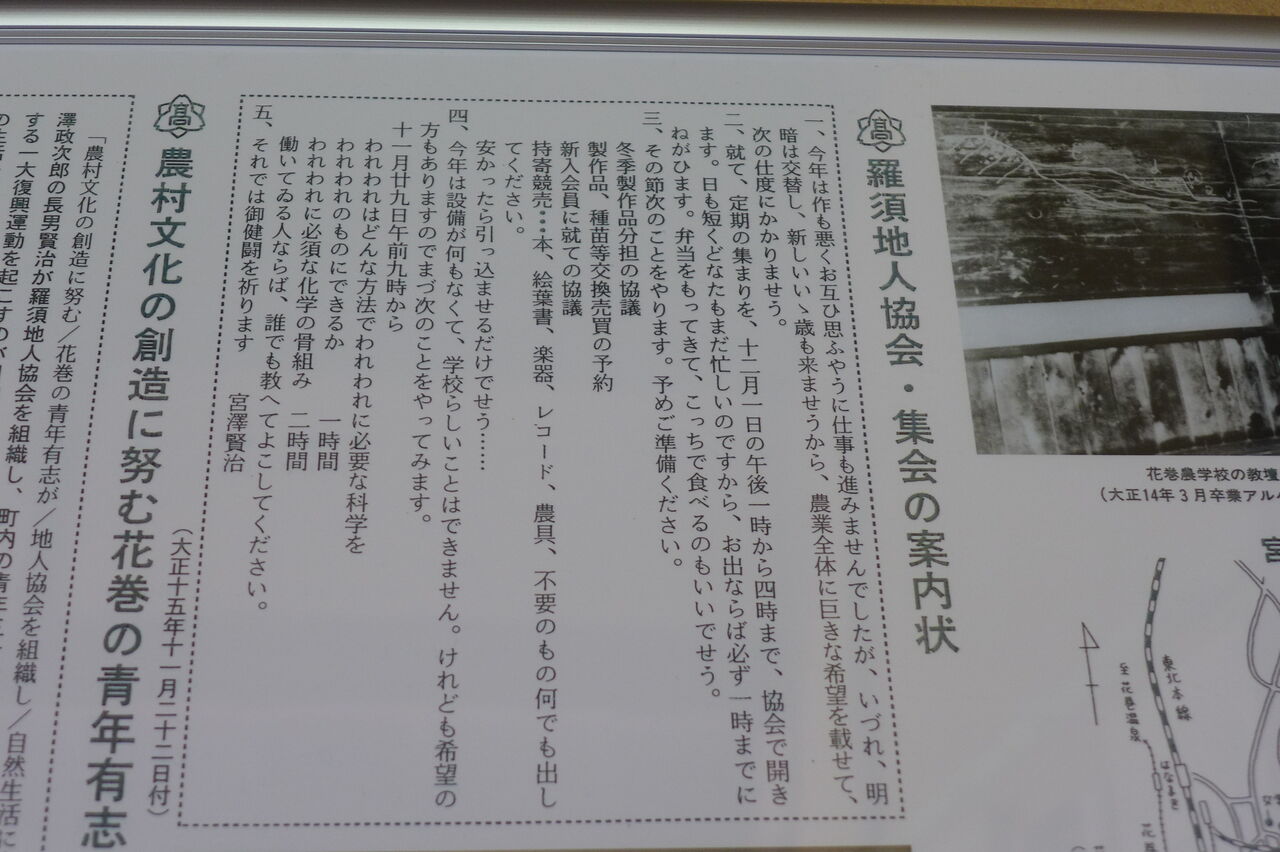 花巻農学校の教壇
(大正14年3月卒業アル
宮
東北本線
至花巻温泉
はなまき
髙 羅須地人協会・集会の案内状
一、今年は作も悪くお互ひ思ふやうに仕事も進みませんでしたが、いづれ、明
暗は交替し、新しいいゝ歳も来ませうから、農業全体に巨きな希望を載せて、
次の仕度にかかりませう。
二、就て、定期の集まりを、十二月一日の午後一時から四時まで、協会で開き
ます。日も短くどなたもまだ忙しいのですから、お出ならば必ず一時までに
ねがひます。弁当をもってきて、こっちで食べるのもいいでせう。
三、その節次のことをやります。予めご準備ください。
冬季製作品分担の協議
製作品、種苗等交換売買の予約
新入会員に就ての協議
持寄競売…本、絵葉書、楽器、レコード、農具、不要のもの何でも出し
てください。
安かったら引っ込ませるだけでせう……
四、今年は設備が何もなくて、学校らしいことはできません。けれども希望の
方もありますのでまづ次のことをやってみます。
十一月廿九日午前九時から
われわれはどんな方法でわれわれに必要な科学を
われわれのものにできるか 一時間
われわれに必須な化学の骨組み 二時間
働いてゐる人ならば、誰でも教へてよこしてください。
五、それでは御健闘を祈ります 宮澤賢治
(大正十五年十一月二十二日付)
髙 農村文化の創造に努む花巻の青年有志
「農村文化の創造に努む/花巻の青年有志が/地人協会を組織し/自然生活に
澤政次郎の長男賢治が羅須地人協会を組織し、町内の青年
する一大復興運動を起こすのが